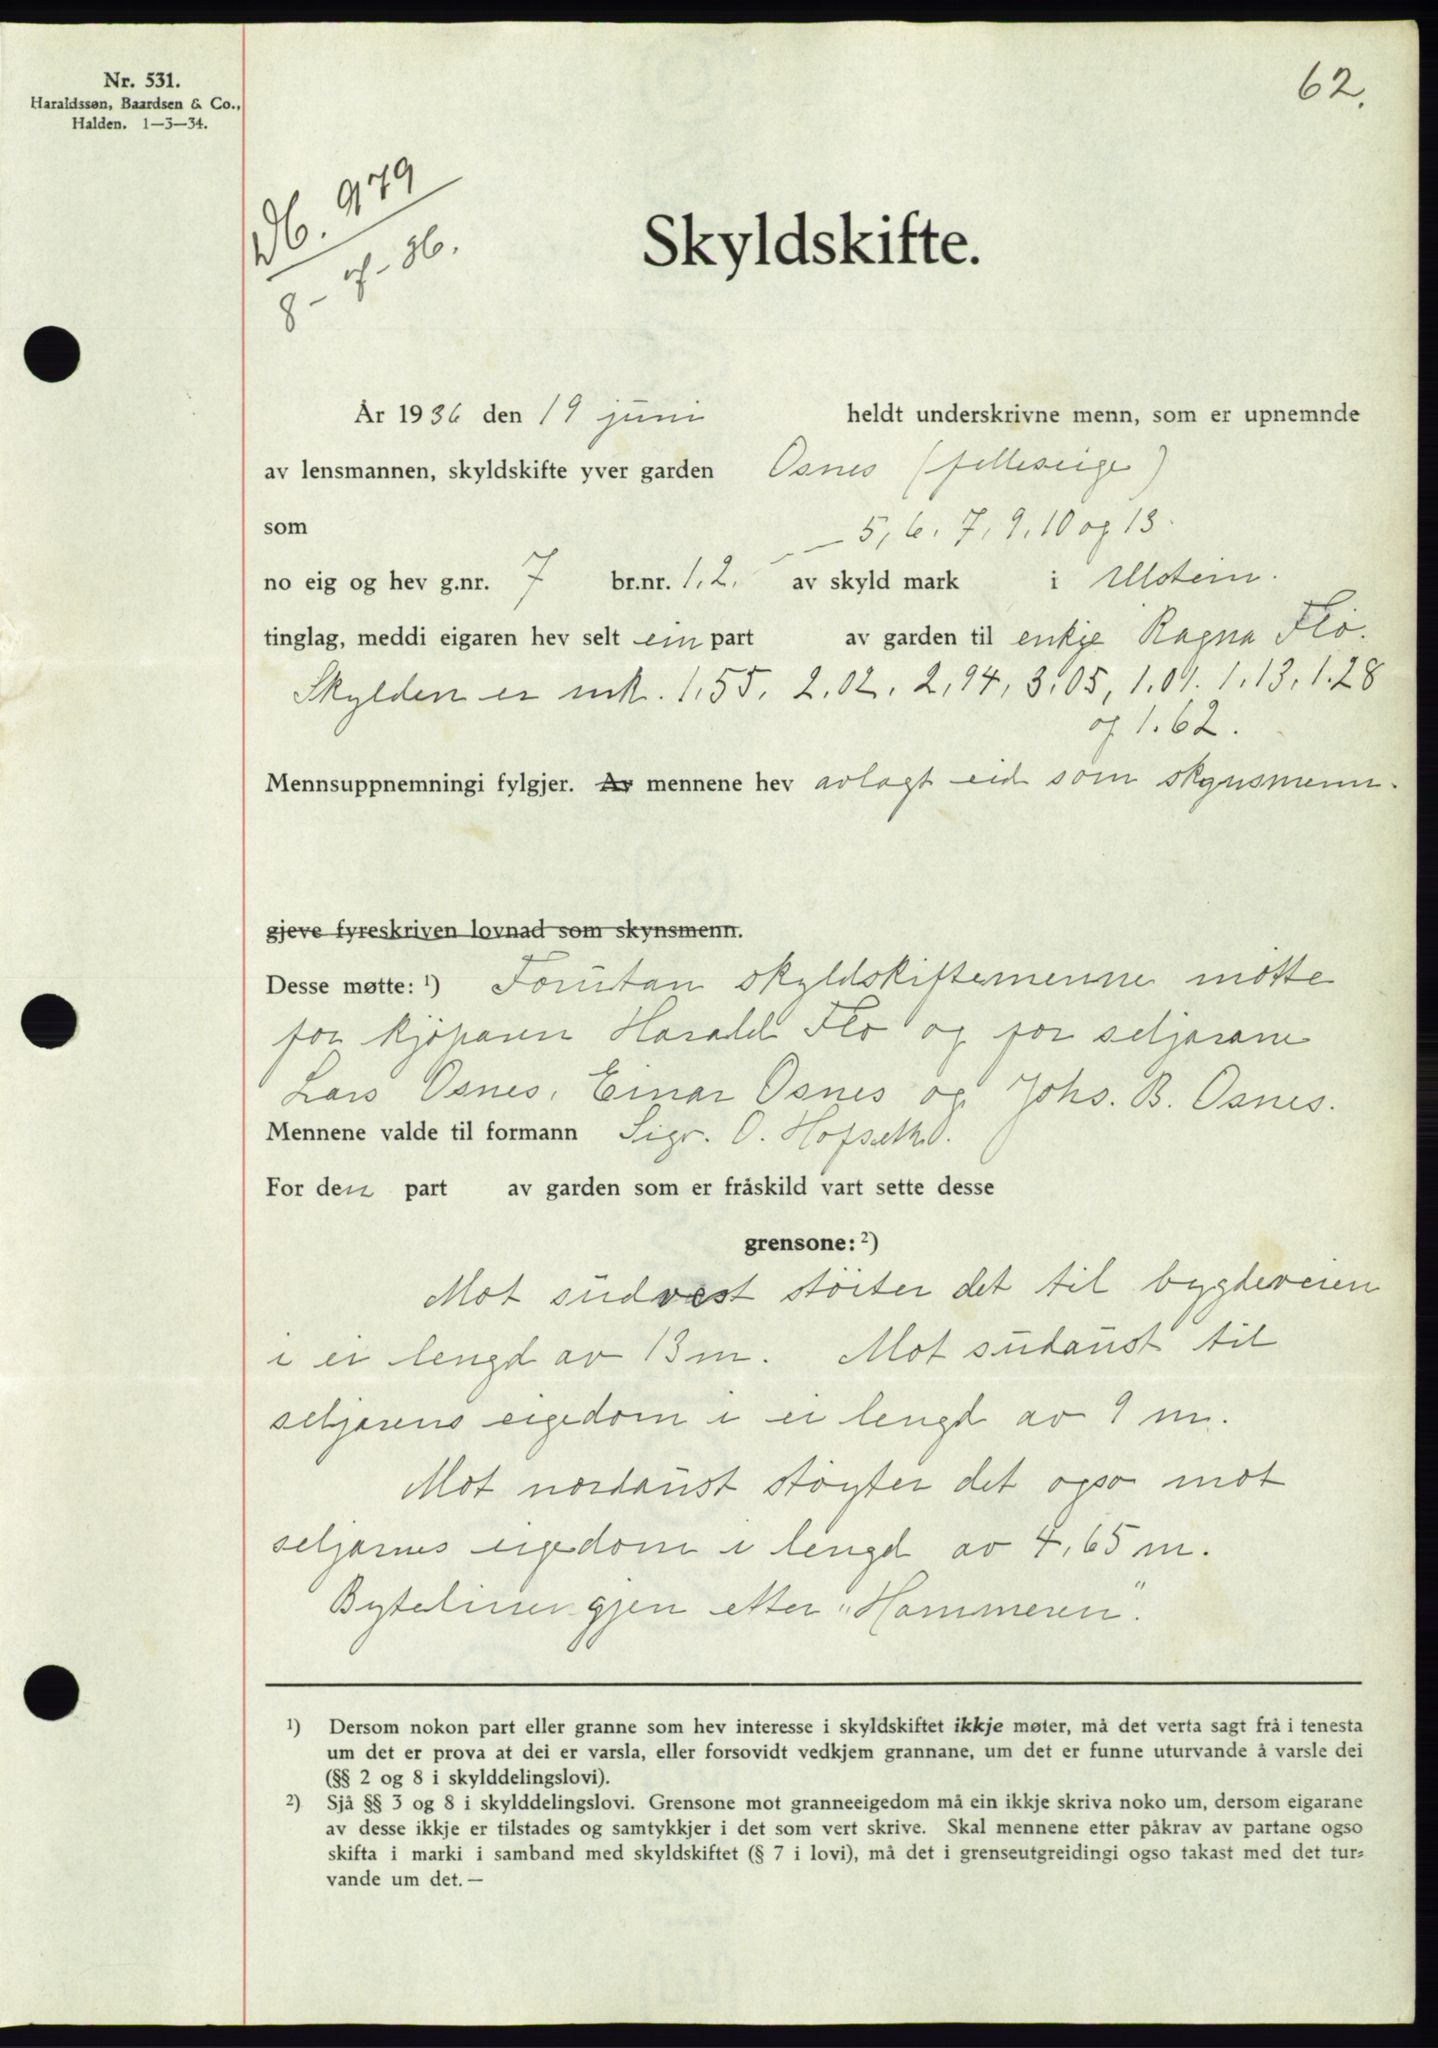 Nr. 531.
Haraldssøn, Baardsen & Co.,
Halden. 1—3—34.
62.
Db. 979
8- - 36.
Skyldskifte.
År 1936 den 19 juni heldt underskrivne menn, som er upnemnde
av lensmannen, skyldskifte yver garden Osnes (felleseige)
som 5, 6, 7, 9, 10 og 13.
no eig og hev g.nr. 7 br.nr. 1, 2, av skyld mark i Ulstein.
tinglag, meddi eigaren hev selt ein part av garden til enkje Ragna Flø.
Skylden er mk. 1,55, 2,02, 2,94, 3,05, 1,01. 1,13, 1,28
og 1.62.
Mennsuppnemningi fylgjer. Av mennene hev avlagt eid som skynsmenn.
gjeve fyreskriven lovnad som skynsmenn.
Desse møtte: ¹) Forutan skyldskiftemennene møtte
for kjøparen Harald Flø og for seljarane
Lars Osnes, Einar Osnes og Johs. B. Osnes.
Mennene valde til formann Sigr. O. Hofseth.
For den part av garden som er fråskild vart sette desse
grensone: ²)
Mot sudvest støiter det til bygdeveien
i ei lengd av 13 m. Mot sudaust til
seljarens eigedom i ei lengd av 9 m.
Mot nordaust støyter det ogso mot
seljarnes eigedom i lengd av 4,65 m.
Bytelinen gjen etter "Hammeren".
¹) Dersom nokon part eller granne som hev interesse i skyldskiftet ikkje møter, må det verta sagt frå i tenesta
um det er prova at dei er varsla, eller forsovidt vedkjem grannane, um det er funne uturvande å varsle dei
(§§ 2 og 8 i skylddelingslovi).
²) Sjå §§ 3 og 8 i skylddelingslovi. Grensone mot granneeigedom må ein ikkje skriva noko um, dersom eigarane
av desse ikkje er tilstades og samtykkjer i det som vert skrive. Skal mennene etter påkrav av partane ogso
skifta i marki i samband med skyldskiftet (§ 7 i lovi), må det i grenseutgreidingi ogso takast med det tur-
vande um det. —